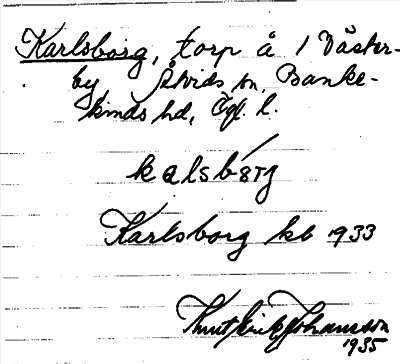 Karlsborg, torp å 1 Väster-
by Åtvids sn, Banke-
kinds hd, Ögl. l.
kalsbɜrg
Karlsborg kb 1933
Knut Erik Johansson
1935